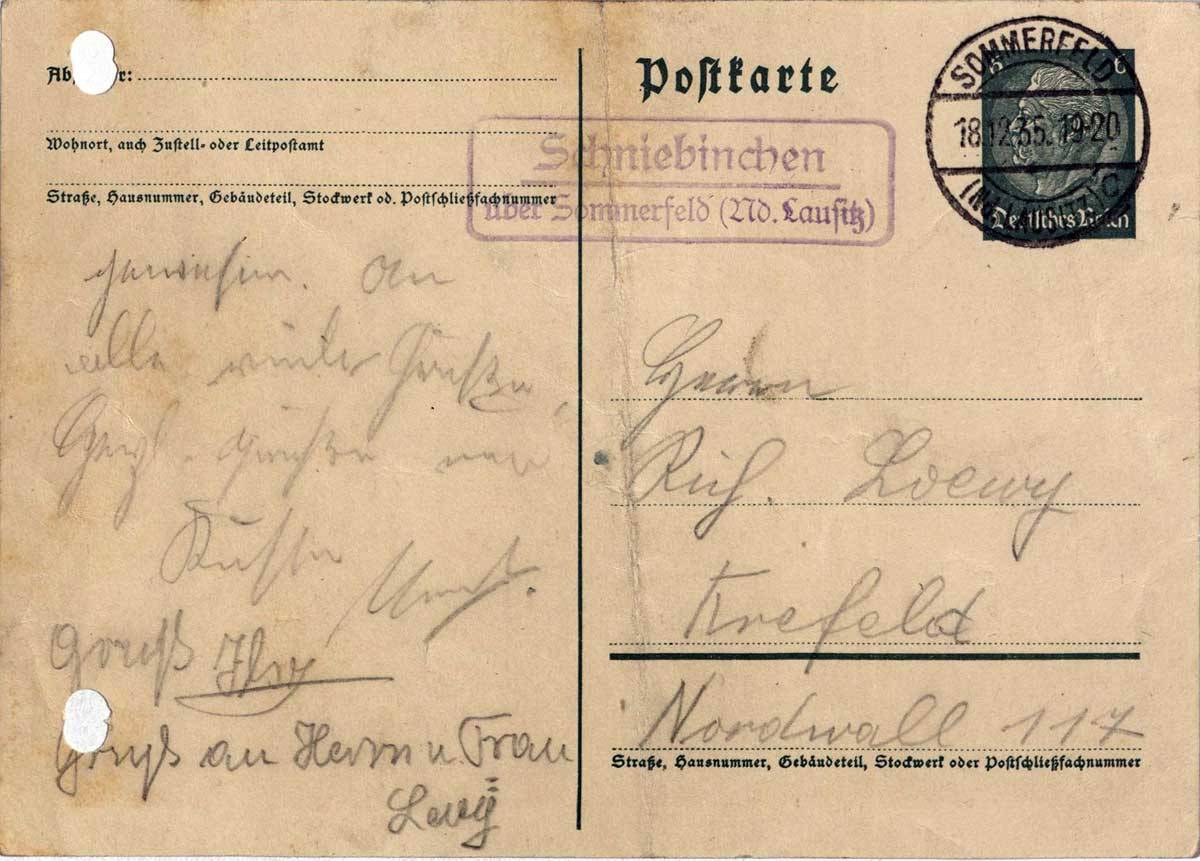 Postkarte
SOMMERFELD
18.12.35.19-20
6
Deutsches Reich
Schniebinchen
über Sommerfeld (Nd. Lausitz)
Wohnort, auch Zustell- oder Leitpostamt
Straße, Hausnummer, Gebäudeteil, Stockwerk od. Postschließfachnummer
gewesen. An
alle viele Grüße,
Grüße und
Küsse
Gruß
Gruß an Herrn u. Frau
Levy
Herrn
Rich. Loewy
Krefeld
Nordwall 117
Straße, Hausnummer, Gebäudeteil, Stockwerk oder Postschließfachnummer